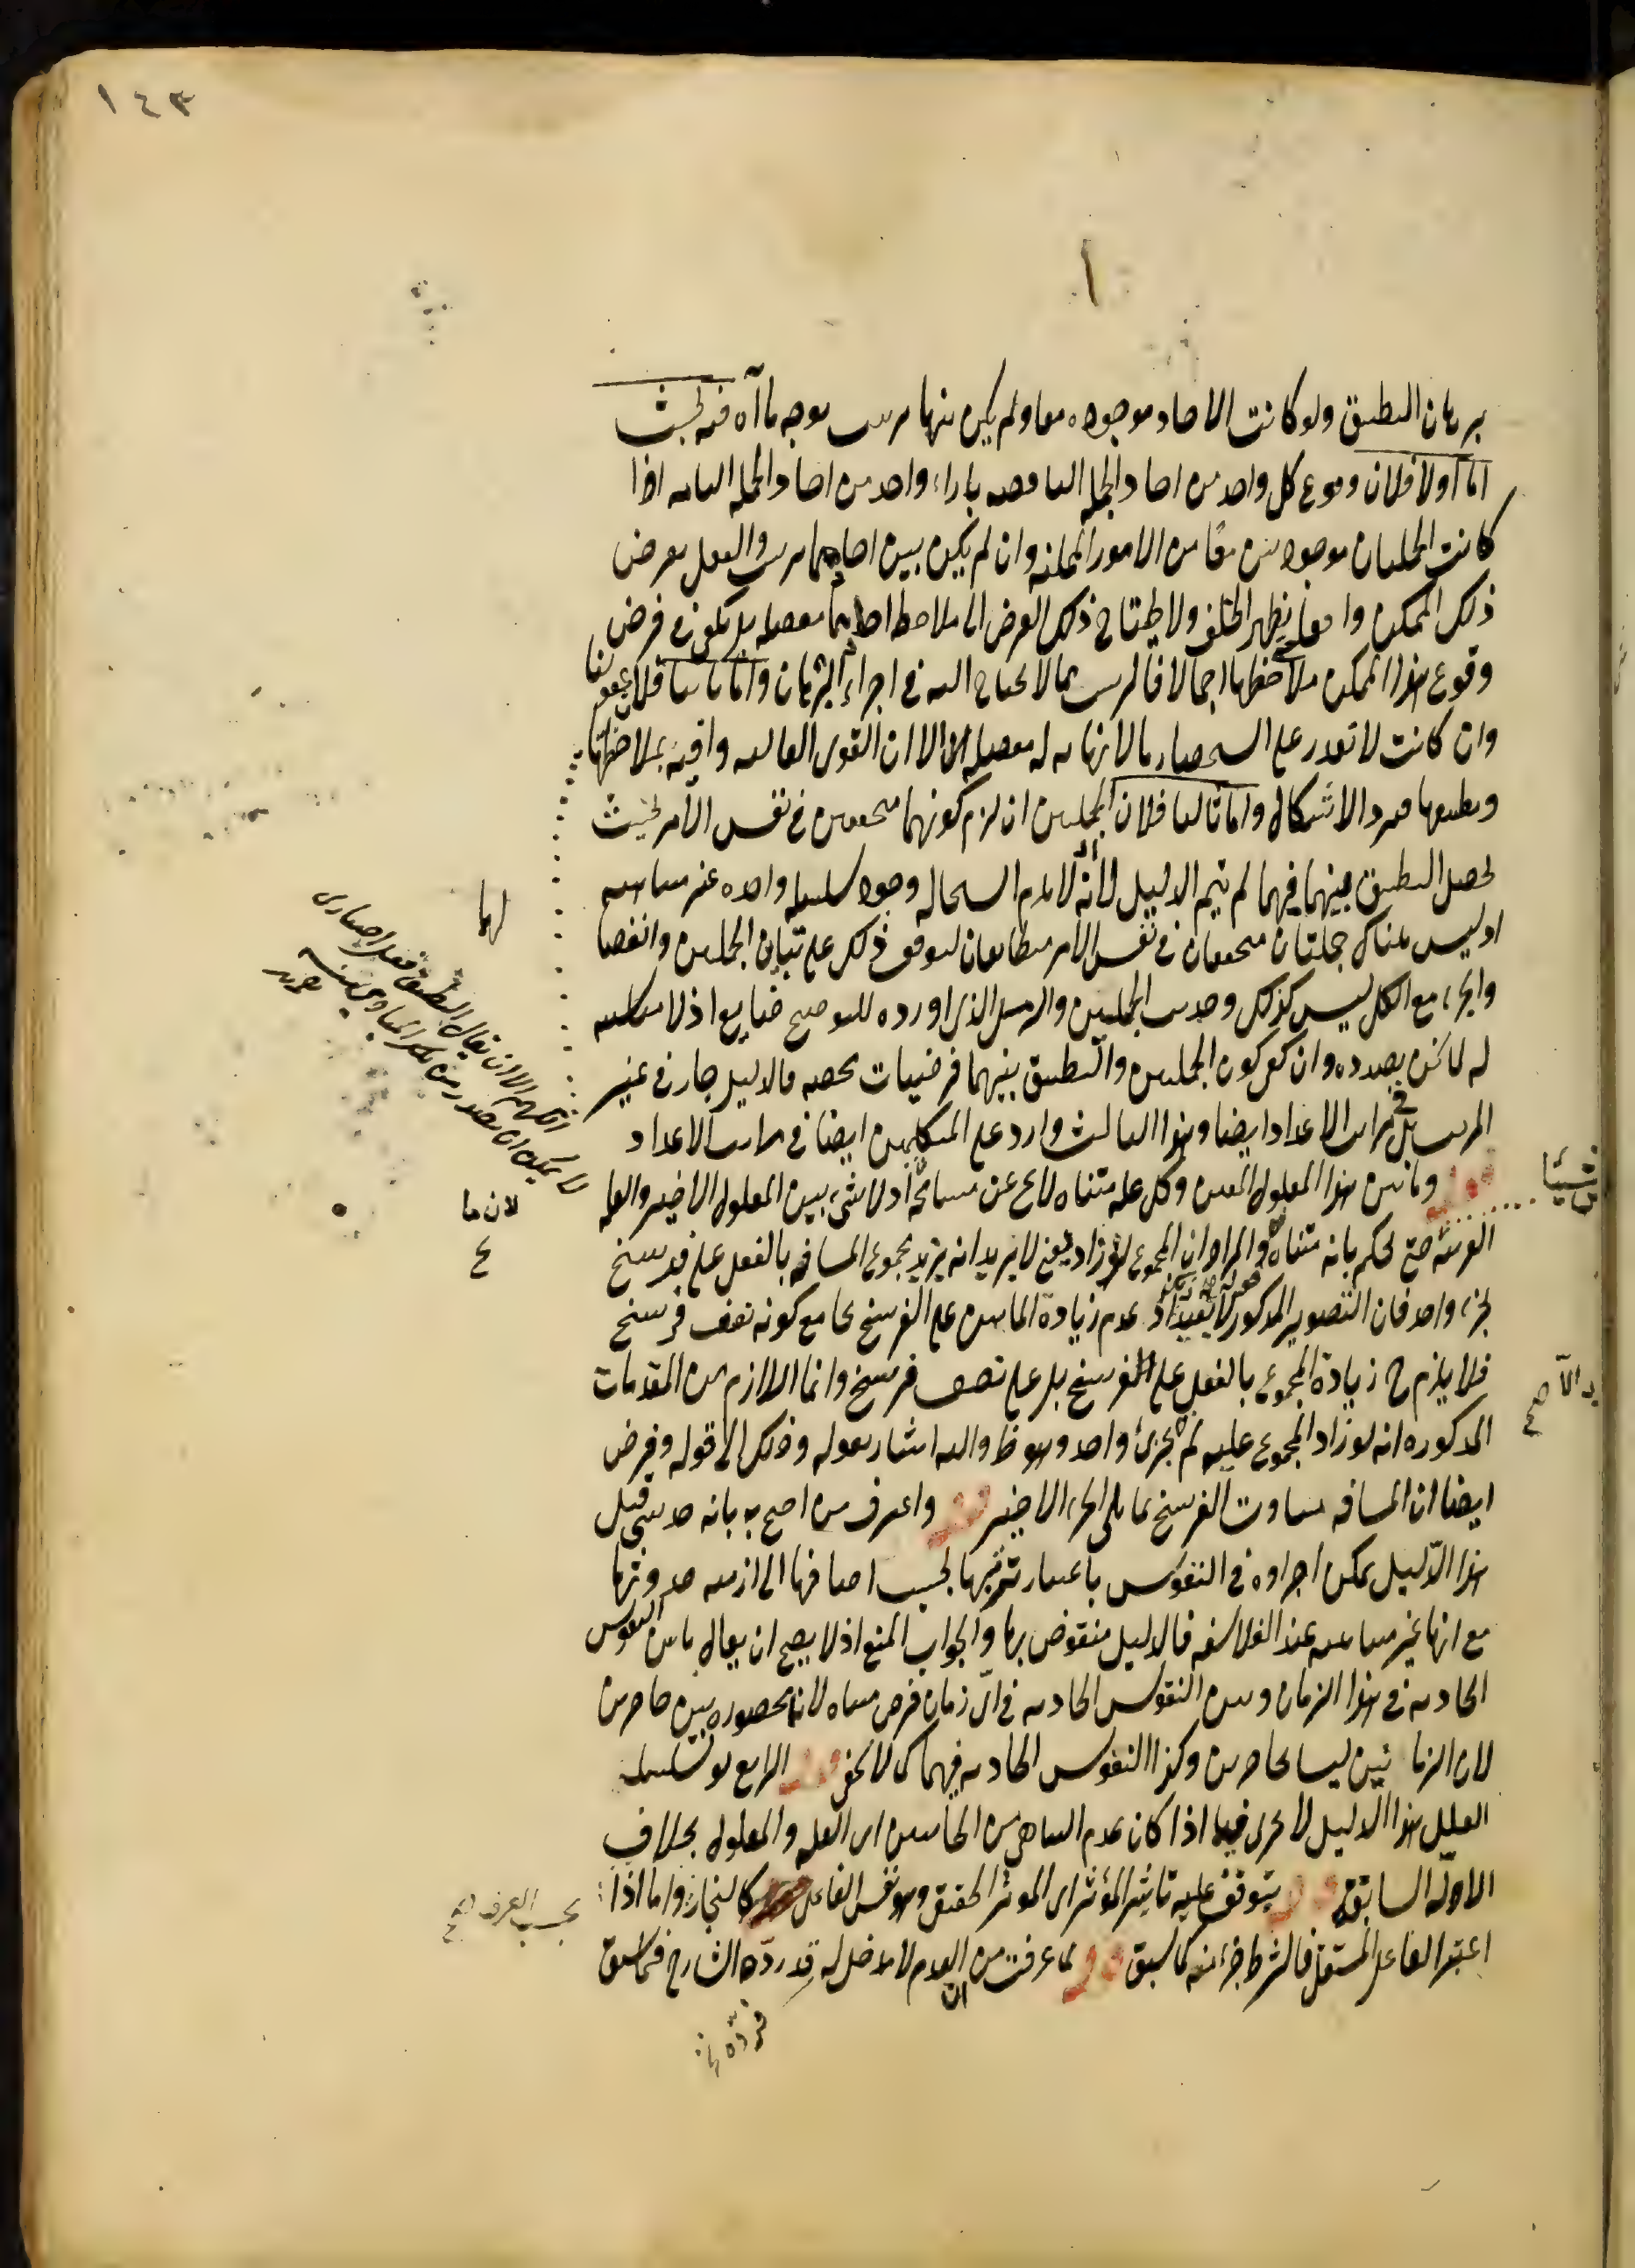 ١٤٣
برهان التطبيق ولو كانت الآحاد موجوده معا ولم يكن بينها ترتب بوجه ما آه فيه بحث
اما اولا فلان وقوع كل واحد من احاد الجمله الناقصه بازاء واحد من احاد الجمله التامه اذا
كانت الجملتان موجودتين معًا من الامور الممكنه وان لم يكن بين احادهما ترتب والعقل يفرض
ذلك الممكن واقعا يظهر الخلف ولا يحتاج ذلك الفرض الى ملاحظه احادهما مفصله بل يكفى فى فرض
وقوع هذا الممكن ملاحظتها اجمالا فالترتب مما لا يحتاج اليه فى اجراء البرهان واما ثانيا فلان عقولنا
وان كانت لا تقدر على استحضار ما لا نهايه له مفصله الا ان القوى العاليه وافيه بملاحظتها
وتطبيقها فيرد الاشكال واما ثالثا فلان الجملتين ان لزم كونهما متحققين فى نفس الامر بحيث
يحصل التطبيق بينهما فيهما لم يتم الدليل لانه لا يلزم استحاله وجود سلسله واحده غير متناهيه
اذ ليس هناك جملتان متحققتان فى نفس الامر متطابقتان لتوقف ذلك على تباين الجملتين وانفصا
لهما
والجزء مع الكل ليس كذلك وحديث الجملتين والرمل الذى اورده للتوضيح ضايع اذ لا مناسبه
له لما نحن بصدده وان كفى كون الجملتين والتطبيق بينهما فرضيات محضه فالدليل جار فى غير
المرتب بل فى مراتب الاعداد ايضا وهذا الثالث وارد على المتكلمين ايضا فى مراتب الاعداد
قوله وما بين هذا المعلول المعين وكل عله متناه لايخ عن مسامحة اذ لا شىء بين المعلول الاخير والعله
القريبه حتى يحكم بانه متناه والمراد ان المجموع لو زاد يعنى لا يريد انه يزيد مجموع المسافه بالفعل على فرسخ
بجزء واحد فان التصوير المذكور لا يفيد اذ عدم زيادة المابين على الفرسخ يجامع كونه نصف فرسخ
فلا يلزم ح زيادة المجموع بالفعل على الفرسخ بل على نصف فرسخ وانما اللازم من المقدمات
المذكوره انه لو زاد المجموع عليه لم بجزئ واحد وهو ظ واليه اشار بقوله وذلك الى قوله وفرض
ايضا ان المسافه ساوت الفرسخ مما يلى الجزء الاخير قوله واعترف من احتج به بانه حدسى قيل
هذا الدليل يمكن اجراوه فى النفوس باعتبار ترتبها بحسب اضافتها الى ازمنه حدوثها
مع انها غير متناهيه عند الفلاسفه فالدليل منقوض بها والجواب المنع اذ لا يصح ان يقال ما بين النفوس
الحادثه فى هذا الزمان وبين النفوس الحادثه فى اى زمان فرض متناه لانه محصوره بين حاصرين
لان الزمانين ليسا بحاصرين وكذا النفوس الحادثه فيهما كما لا يخفى قوله الرابع لو تسلسلت
العلل هذا الدليل لا يجرى فيما اذا كان عدم التناهى من الجانبين اى العله والمعلول بخلاف
الادله السابقه قوله يتوقف عليه تاثير المؤثر اى الموثر الحقيقى وهو نفس الفاعل كالنجار واما اذا
اعتبر الفاعل المستقل فالشرط جزء منه كما سبق قوله لما عرفت من ان العدم لا مدخل له قد ردّه الشارح فيما سبق
اللهم الا ان يقال التطبيق فعل اختيارى
لا يمكن ان يصدر من تلك المبادى
لان ما
شيئًا
بحسب العرف صح